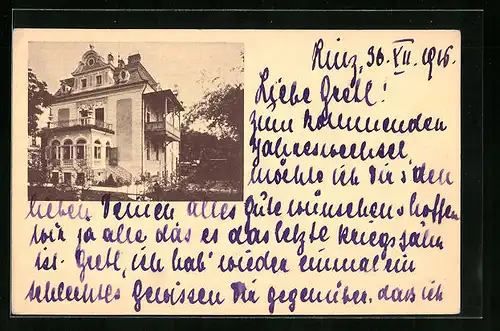 Linz, 30. XII. 1916.
Liebe Gretl!
Zum kommenden
Jahreswechsel
möchte ich Dir & den
lieben Deinen alles Gute wünschen & hoffen
wir ja alle das es das letzte Kriegsjahr
ist. Gretl, ich hab' wieder einmal ein
schlechtes Gewissen Dir gegenüber, dass ich